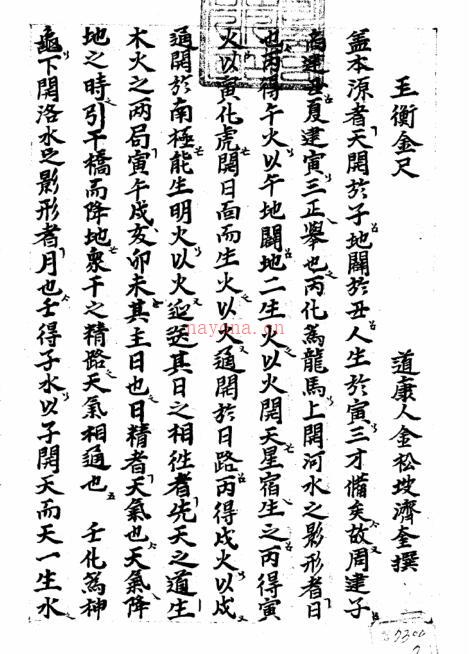 玉衡金尺
道康人金松坡濟全撰
盖本源者天開於子地闢於丑人生於寅三才備矣故周建子
啇建丑夏建寅三正擧也丙化為龍馬上開河水之影形者日
也丙得午火以午地闢地二生火以火開天星宿生之丙得寅
火以寅化虎開日面而生火以火通開於日路丙得戌火以戌
通開於南極能生明火以火迎送其日之相徃者先天之道生
木火之两局寅午戌亥卯未其主日也日精者天氣也天氣降
地之時引干橋而降地衆干之精路天氣相通也 壬化為神
龜下開洛水之影形者月也壬得子水以子開天而天一生水
nayona.cn